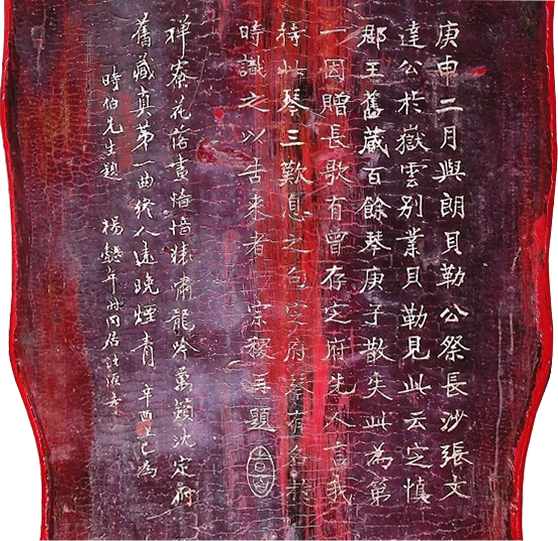 庚申二月與朗貝勒公祭長沙張文
達公於嶽雲別業貝勒見此云定慎
郡王舊蔵百餘琴庚子散失此為第
一因贈長歌有曾存定府先人言我
持此琴三歎息之句定府琴有名於
時識之以告来者 宗稷再題
禅寮花落晝愔愔猿嘯龍吟萬籟沈定府
舊藏真第一曲終人遠晚煙青 辛酉上巳為
時伯先生題 楊懿年時同居法源寺